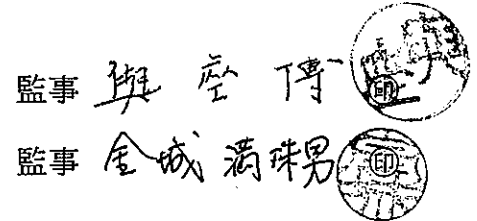 監事 與座 傳 ㊞
監事 金城 満珠男 ㊞